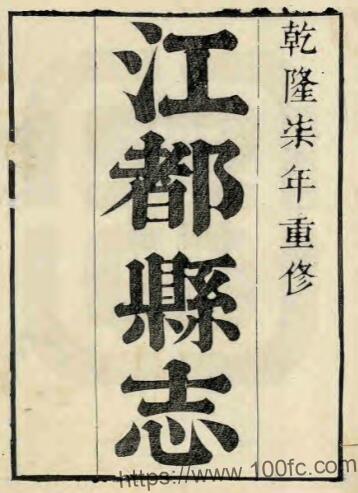 乾隆柒年重修
江都縣志
https://www.100fc.com